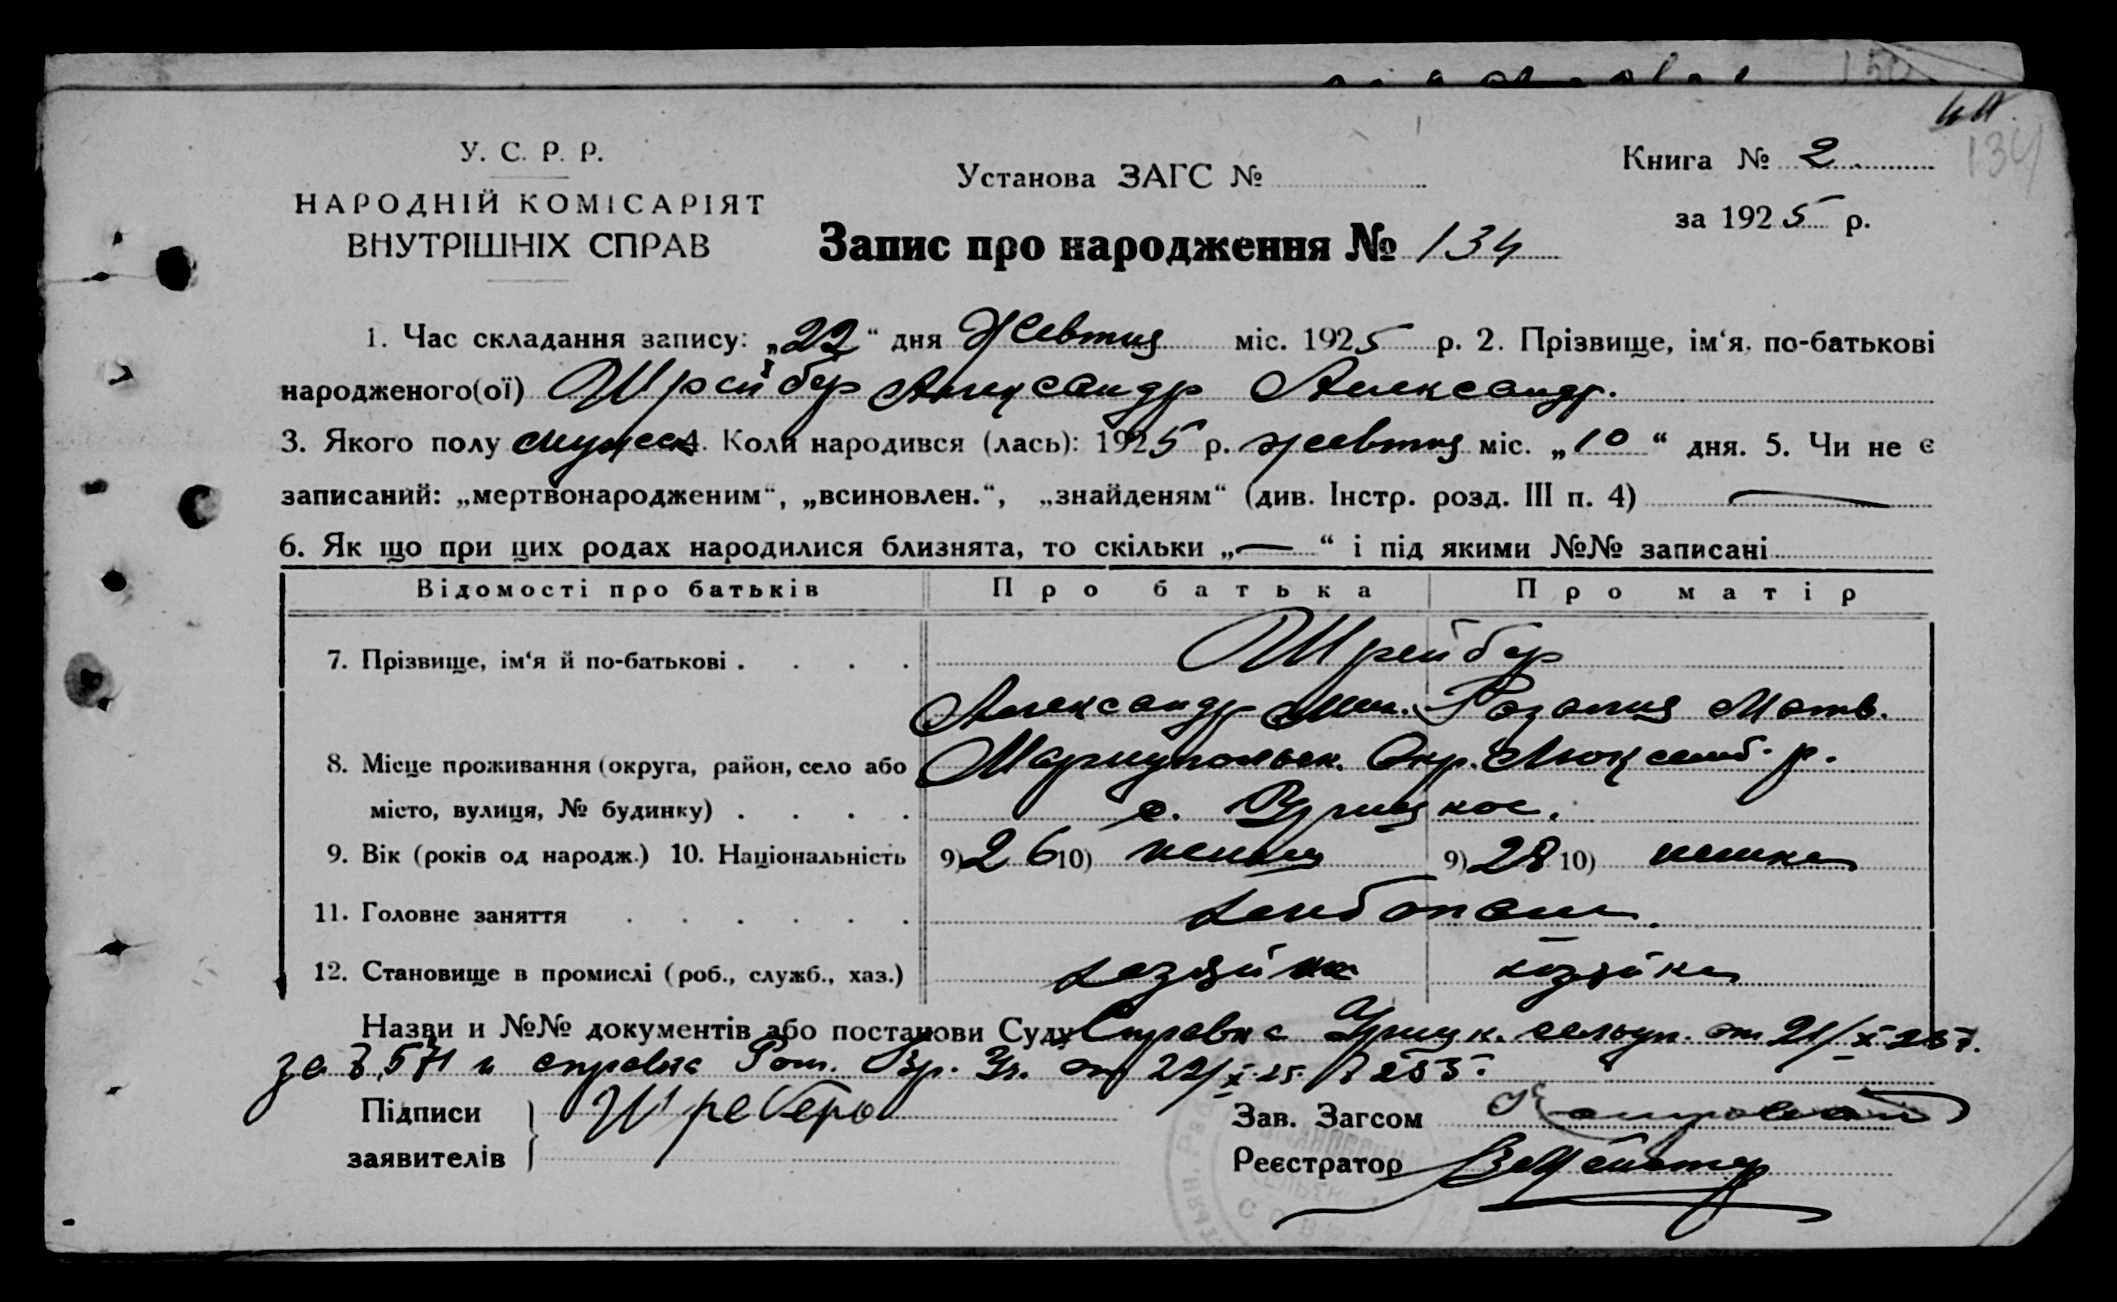 У. С. Р. Р.
НАРОДНІЙ КОМІСАРІЯТ
ВНУТРІШНІХ СПРАВ
Установа ЗАГС №
Книга № 2
134
за 1925 р.
Запис про народження № 134
1. Час складання запису: „22“ дня Жевтня міс. 1925 р. 2. Прізвище, ім‘я, по-батькові
народженого(ої) Шрейбер Александр Александр.
3. Якого полу мужеск 4. Коли народився (лась): 1925 р. жевтня міс. „10“ дня. 5. Чи не є
записаний: „мертвонародженим“, „всиновлен.“, „знайденям“ (див. Інстр. розд. III п. 4) —
6. Як що при цих родах народилися близнята, то скільки „—“ і під якими №№ записані
Відомості про батьків Про батька Про матір
7. Прізвище, ім‘я й по-батькові . . . . Шрейбер
Александр Мих. Розалия Матв.
8. Місце проживання (округа, район, село або Мариупольск. Окр. Люксемб. р.
місто, вулиця, № будинку) . . . . с. Урицкое.
9. Вік (років од народж.) 10. Національність 9) 26 10) немец 9) 28 10) немка
11. Головне заняття . . . . . . хлебопаш.
12. Становище в промислі (роб., служб., хаз.) хазяйка
Назви и №№ документів або постанови Суду Справка Урицк. сельуп. от 21/X 25 г.
за № 571 и справка от 22/X 25 № 253.
Підписи
заявителів
Шрейберъ
Зав. Загсом
Реєстратор